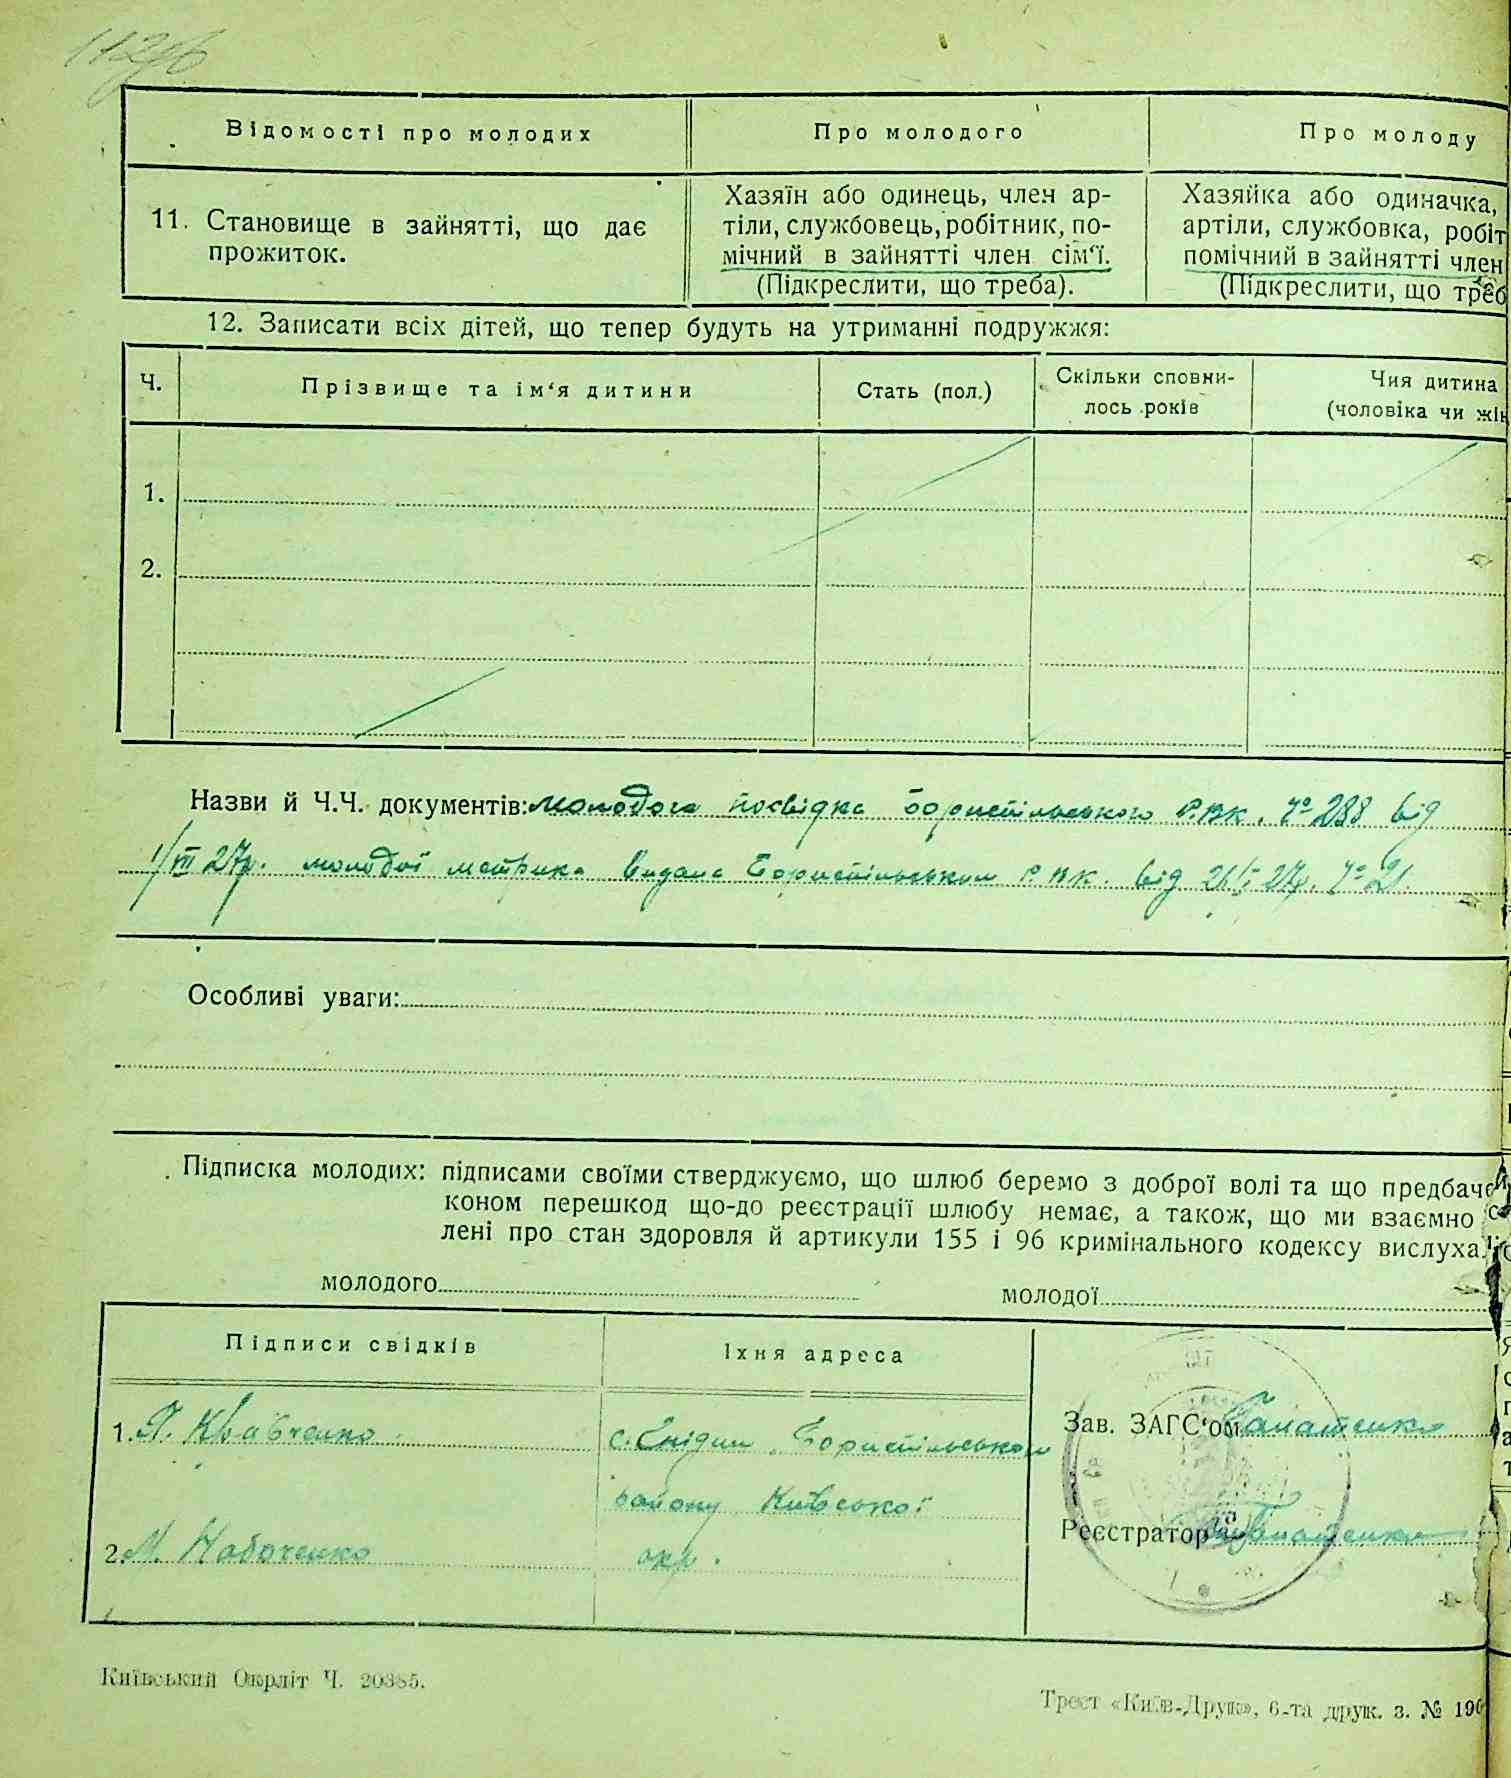 Відомості про молодих
Про молодого
Про молоду
11. Становище в зайнятті, що дає
прожиток.
Хазяїн або одинець, член ар-
тіли, службовець, робітник, по-
мічний в зайнятті член сім'ї.
(Підкреслити, що треба).
Хазяйка або одиначка,
артіли, службовка, робіт
помічний в зайнятті член
(Підкреслити, що треб
12. Записати всіх дітей, що тепер будуть на утриманні подружжя:
Ч.
Прізвище та ім'я дитини
Стать (пол.)
Скільки сповни-
лось років
Чия дитина
(чоловіка чи жін
1.
2.
Назви й Ч.Ч. документів: молодого посвідка Бориспільського Р.В.К. № 288 від
1/III 27р. молодої метрика видана Бориспільським Р.В.К. від
Особливі уваги:
Підписка молодих: підписами своїми стверджуємо, що шлюб беремо з доброї волі та що предбаче
коном перешкод що-до реєстрації шлюбу немає, а також, що ми взаємно
лені про стан здоровля й артикули 155 і 96 кримінального кодексу вислуха
молодого
молодої
Підписи свідків
Їхня адреса
1. Я. Кравченко
с. Гнідин Бориспільського
району Київської
окр.
2. М. Набоченко
Зав. ЗАГС'ом
Реєстратор
Київський Окрліт Ч. 20385.
Трест «Київ-Друк», 6-та друк. з. № 190